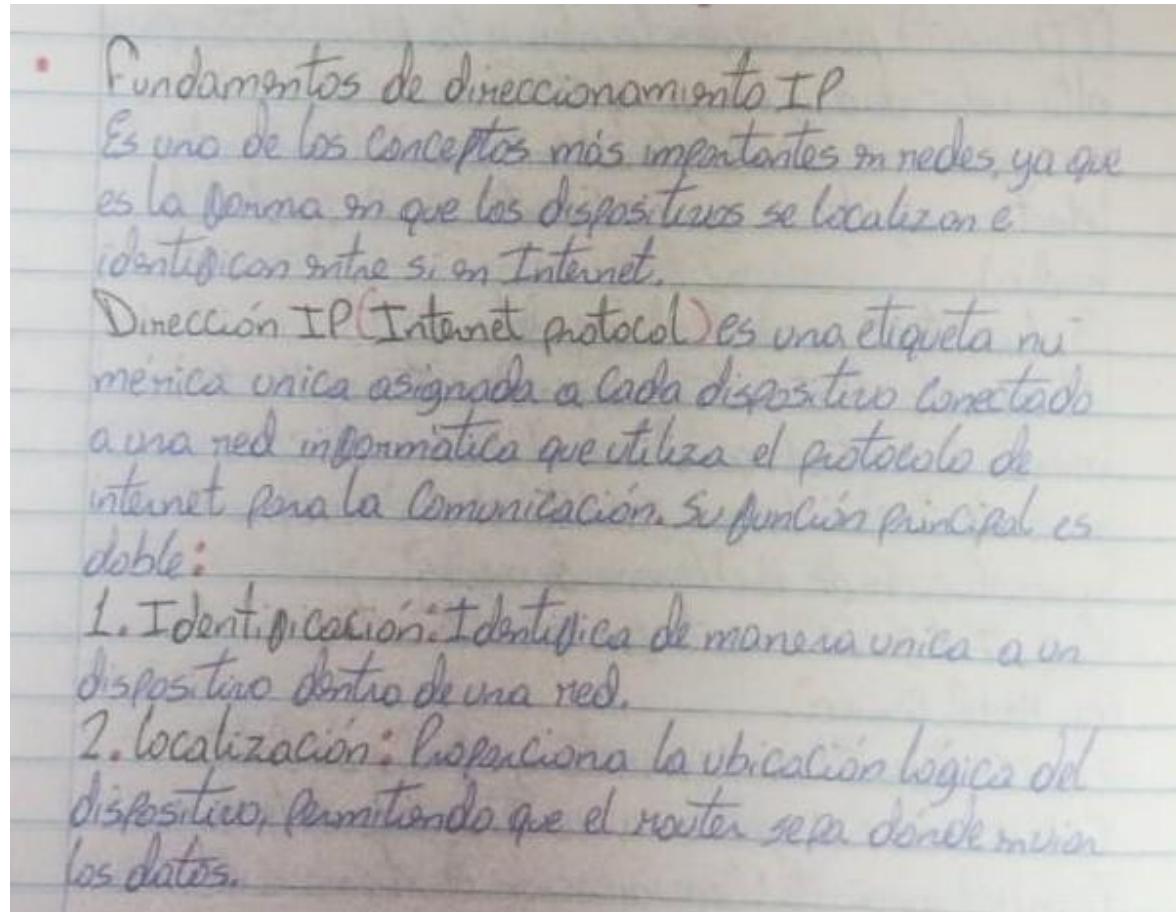 • Fundamentos de direccionamiento IP
Es uno de los conceptos más importantes en redes, ya que
es la forma en que los dispositivos se localizan e
identifican entre si en Internet.
Dirección IP (Internet protocol) es una etiqueta nu
mérica unica asignada a cada dispositivo conectado
a una red informática que utiliza el protocolo de
internet para la comunicación. Su función principal es
doble:
1. Identificación: Identifica de manera unica a un
dispositivo dentro de una red.
2. localización: Proporciona la ubicación lógica del
dispositivo, permitiendo que el router sepa dónde enviar
los datos.